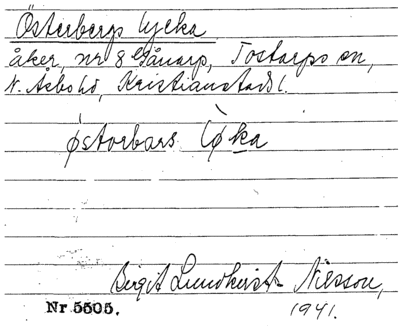 Österbergs lycka
åker, nr 8 Gånarp, Tostarps sn,
N. Åsbo hd, Kristianstads l.
østorbars løka
Birgit Lundkvist Nilsson,
Nr 5505. 1941.